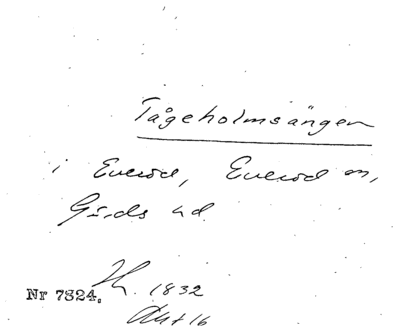 Tågeholmsängen
i Everöd, Everöd sn,
Gärds hd
1832
Nr 7824.
Akt 16